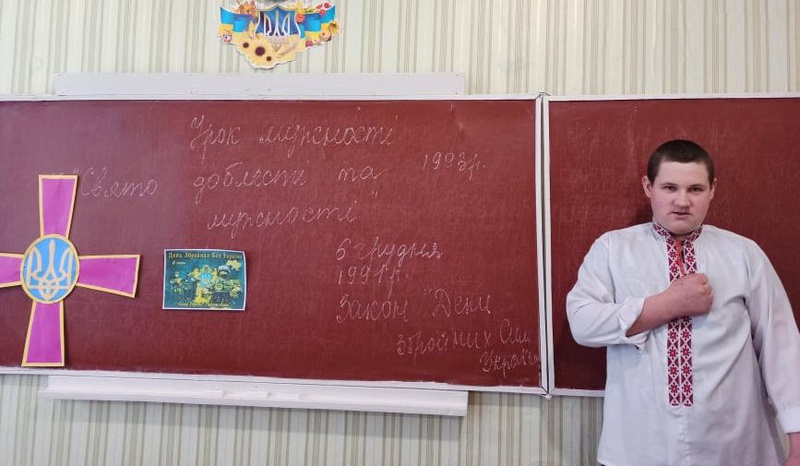 Урок мужності
"Свято доблести та 1993р.
мужності"
6 грудня
1991р.
Закон "День
Збройних Сил
України
День Збройних Сил України
6 грудня